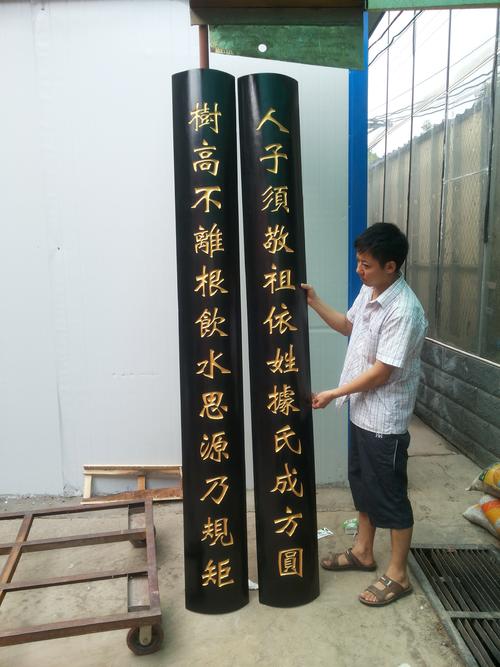 人子須敬祖依姓據氏成方圓
樹高不離根飲水思源乃規矩